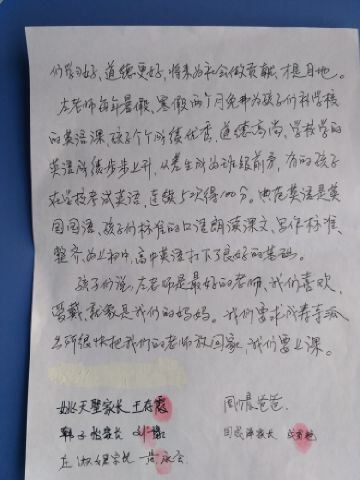 们学习好，道德更好，将来为社会做贡献，才是目地。
左老师每年暑假、寒假两个月免费为孩子们补学校
的英语课，孩子个个成绩优秀，道德高尚，学校学的
英语成绩步步上升，从差生成为班级前茅，有的孩子
在学校考试英语，连续5次得100分。典范英语是英
国国语，孩子们标准的口语朗读课文，写作标准、
整齐，为上初中、高中英语打下了良好的基础。
孩子们说，左老师是最好的老师，我们喜欢，
爱戴，就象是我们的妈妈。我们要求
出所很快把我们的老师放回家，我们要上课。
姚天圣家长 王存霞
周晴爸爸
家长 刘
家长
左淑 家长